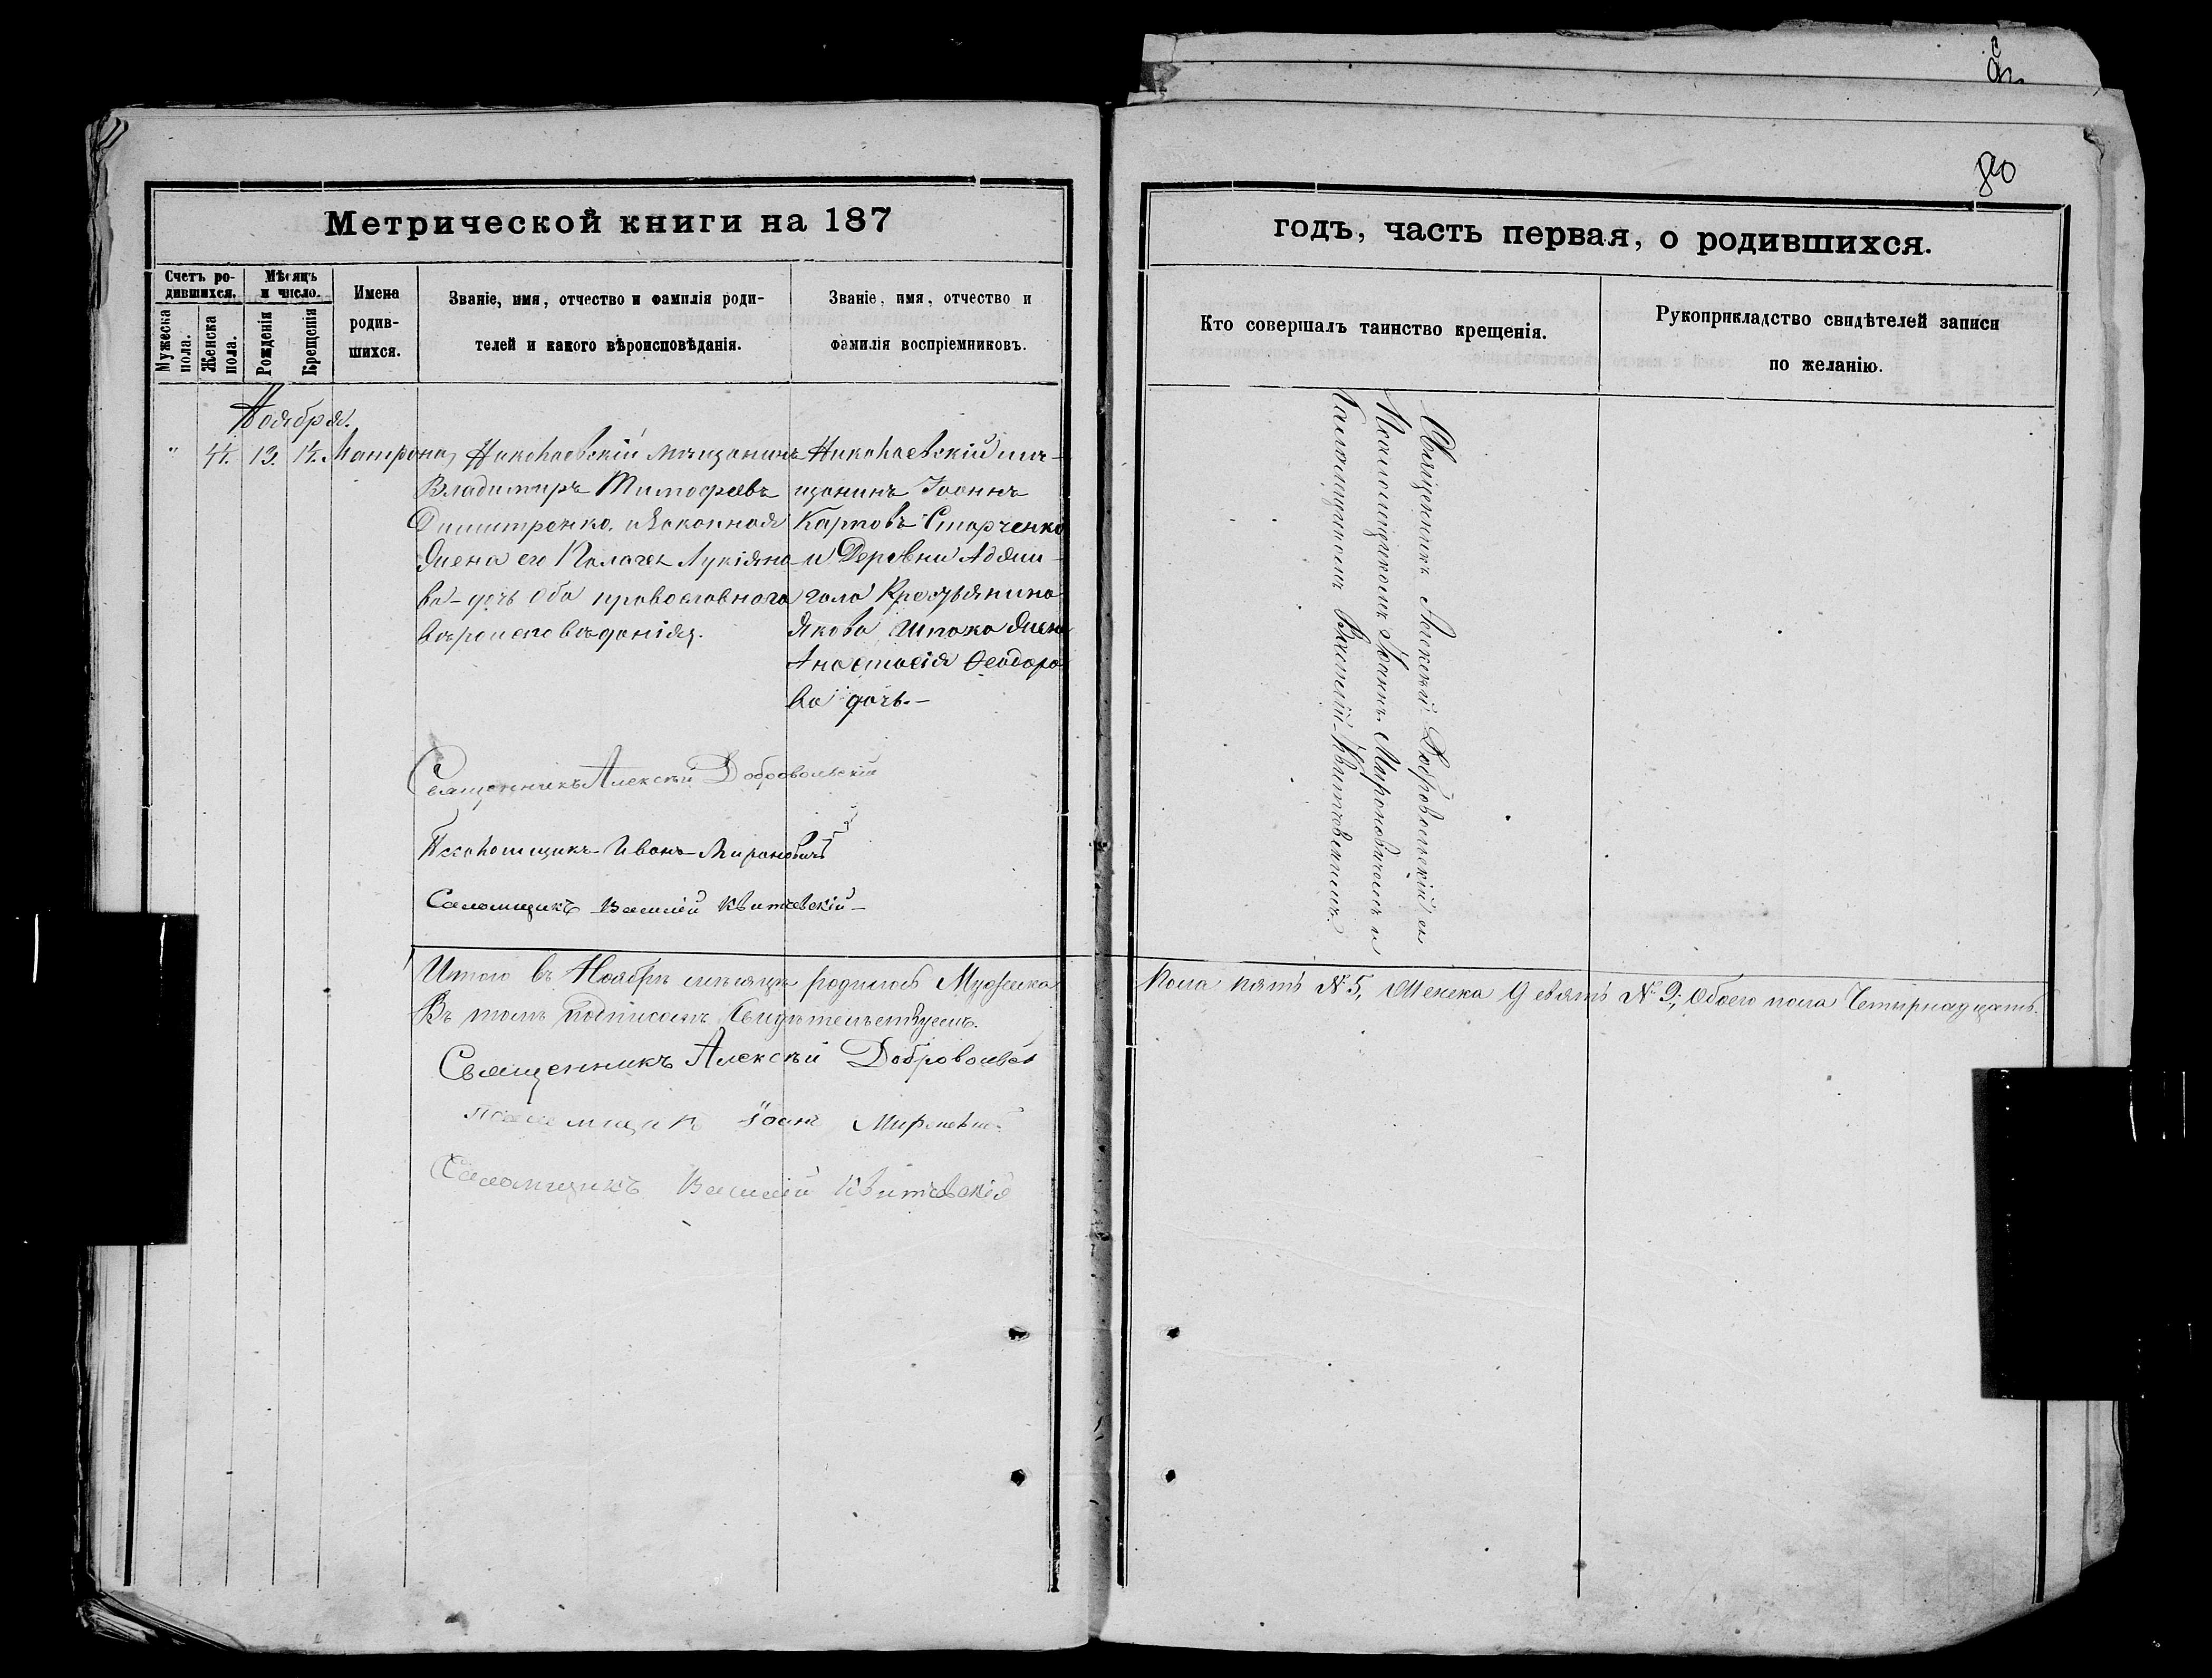 80
Метрической книги на 187
годъ, часть первая, о родившихся.
Счетъ ро-
дившихся.
Мужеска
пола.
Женска
пола.
Мѣсяцъ
и число.
Рожденія
Крещенія
Имена
родив-
шихся.
Званіе, имя, отчество и фамилія роди-
телей и какого вѣроисповѣданія.
Званіе, имя, отчество и
фамилія воспріемниковъ.
Кто совершалъ таинство крещенія.
Рукоприкладство свидѣтелей записи
по желанію.
Ноября.
" 44. 13. 14. Матрона
Николаевскій мѣщанинъ
Владимиръ Тимофеевъ
Димитренко, и законная
жена его Пелагея Лукіяно-
ва-дочь оба православнаго
вѣроисповѣданія.
Николаевскій мѣ-
щанинъ Іоаннъ
Карповъ Старченко
и Деревни Аджи-
гола Крестьянина
Якова Шпака жена
Анастасія Ѳеодоро
ва дочь.-
Священникъ Алексѣй Добровольскій съ
Псаломщикомъ Іоанномъ Мироновичемъ и
Саломщикомъ Василіемъ Квитковскимъ.
Священникъ Алексѣй Добровольскій
Псаломщикъ Иванъ Мироновичъ
Саломщикъ Василій Квитковскій-
Итого въ Ноябрѣ мѣсяцѣ родилось Мужеска пола пять № 5, Женска девять № 9; Обоего пола Четырнадцать.
Въ томъ подписомъ свидѣтельствуемъ.
Священникъ Алексѣй Добровольск
Псаломщикъ Іоанъ Мироновичъ
Саломщикъ Василій Квитковскій